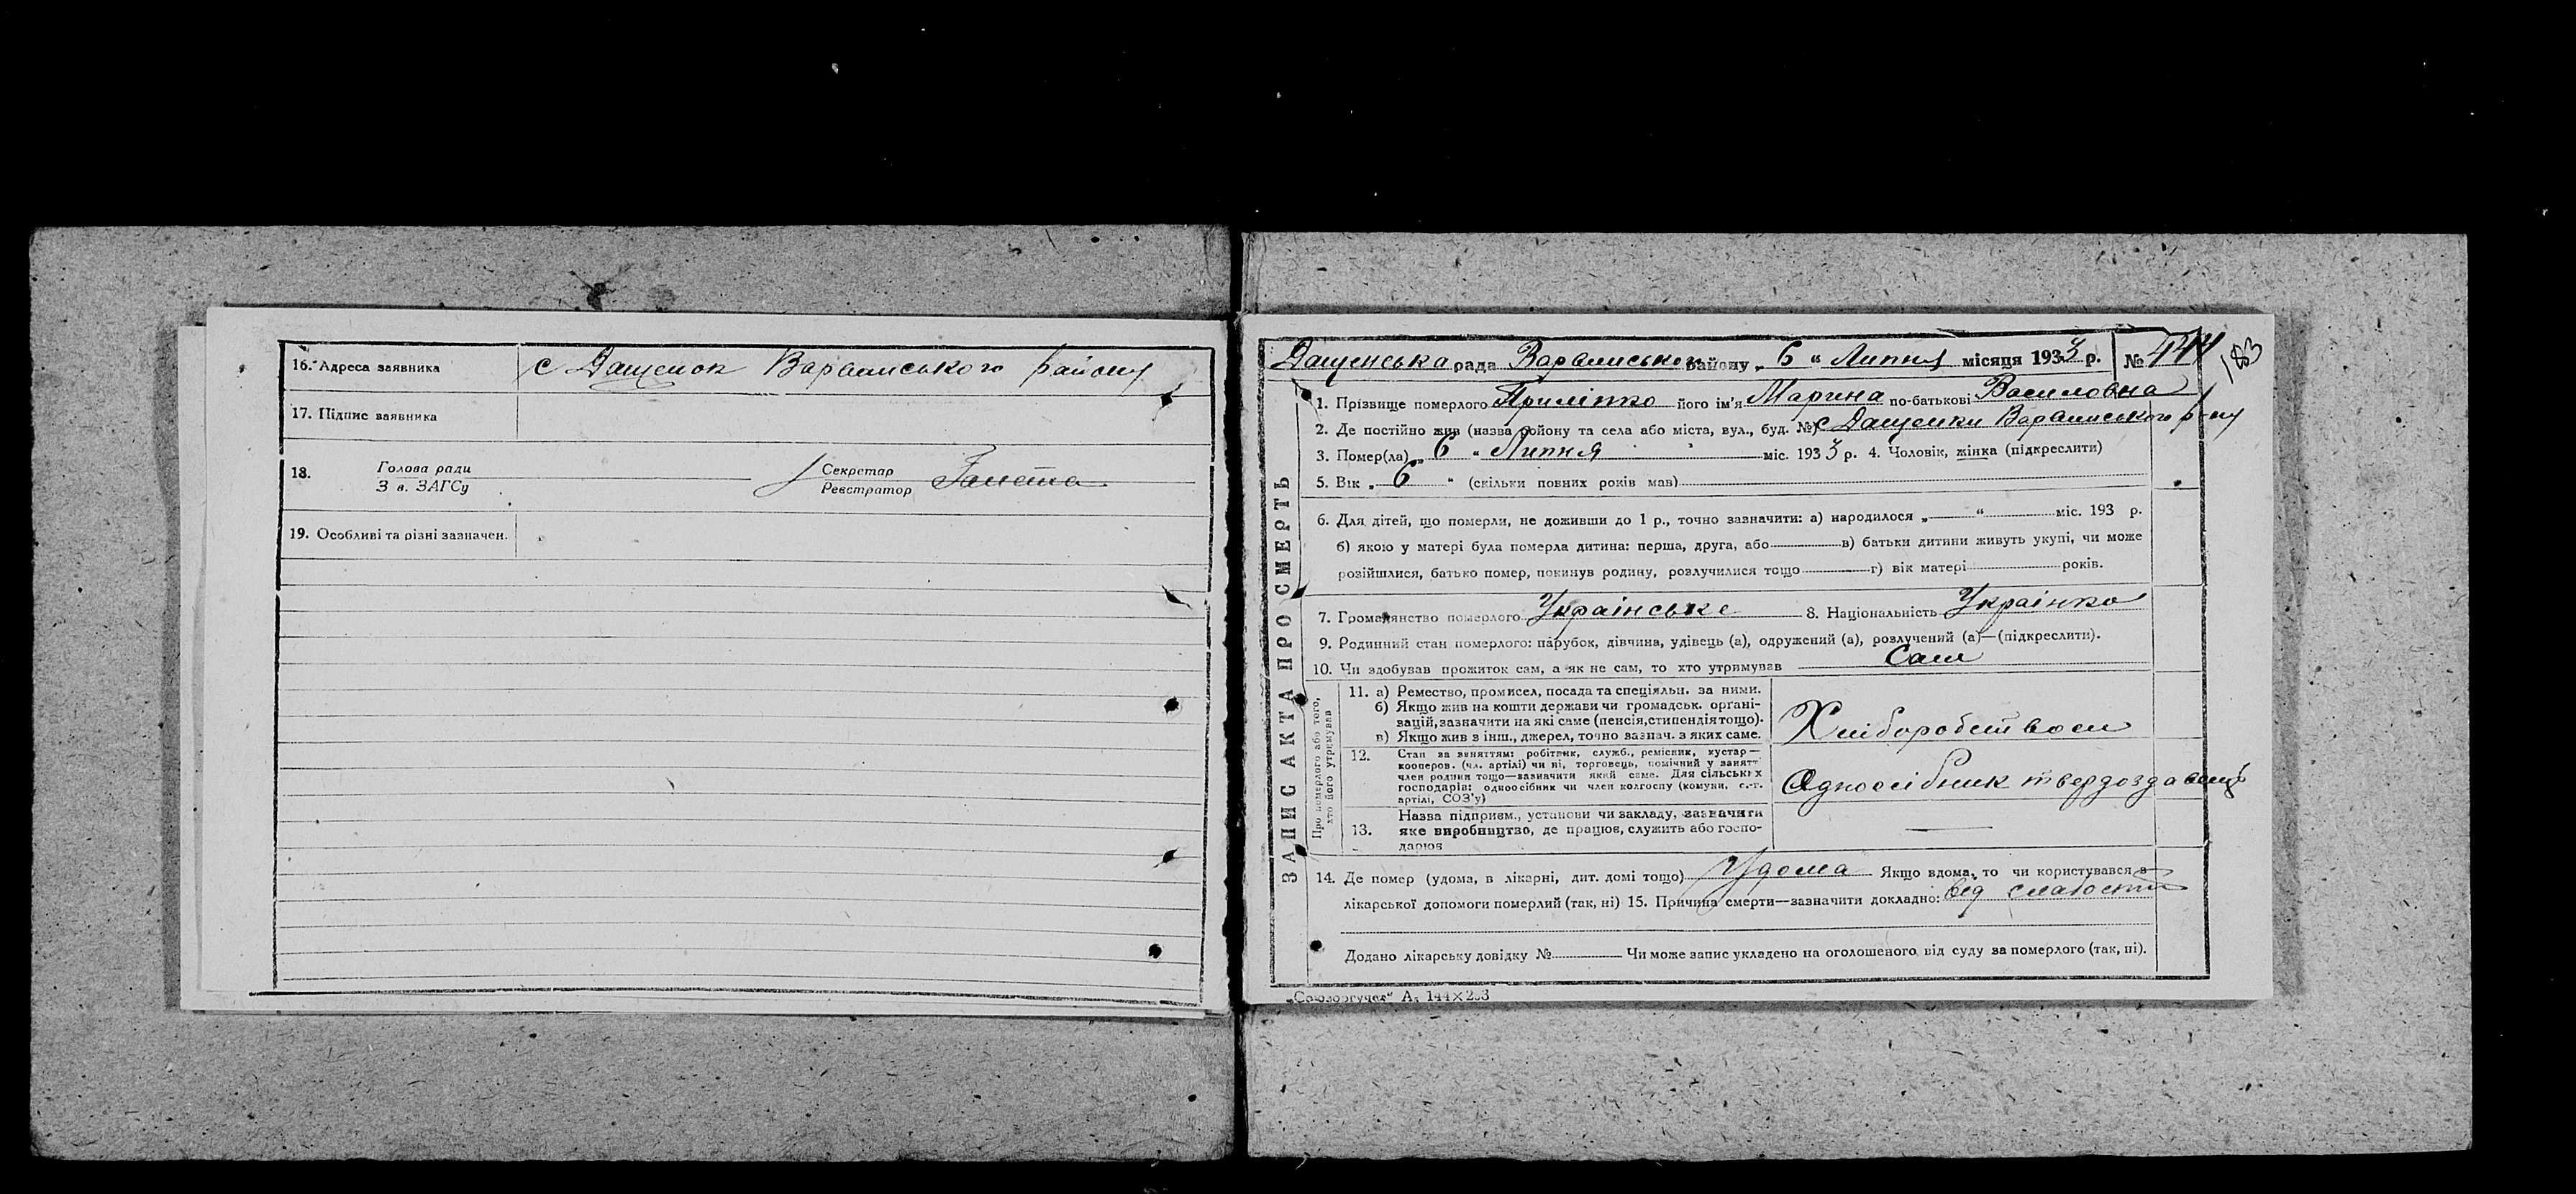 16. Адреса заявника с Дащенок Варвинського району
17. Підпис заявника
18. Голова ради
З в. ЗАГСу
Секретар
Реєстратор
19. Особливі та різні зазначен.
183
Дащенська рада Варвинського району „ 6 “ Липня місяця 1933 р. №
ЗАПИС АКТА ПРО СМЕРТЬ
1. Прізвище померлого Приліпко його ім'я Марина по-батькові Василовна
2. Де постійно жив (назва району та села або міста, вул., буд. №) с Дащенки Варвинського р-ну
3. Помер(ла) „ 6 “ Липня міс. 1933 р. 4. Чоловік, жінка (підкреслити)
5. Вік „ 6 “ (скільки повних років мав)
6. Для дітей, що померли, не доживши до 1 р., точно зазначити: а) народилося „ “ міс. 193 р.
б) якою у матері була померла дитина: перша, друга, або в) батьки дитини живуть укупі, чи може
розійшлися, батько помер, покинув родину, розлучилися тощо г) вік матері років.
7. Громадянство померлого Українське 8. Національність Українка
9. Родинний стан померлого: парубок, дівчина, удівець (а), одружений (а), розлучений (а)—(підкреслити).
10. Чи здобував прожиток сам, а як не сам, то хто утримував Сам
Про померлого або того,
хто його утримував
11. а) Ремество, промисел, посада та спеціяльн. за ними.
б) Якщо жив на кошти держави чи громадськ. органі-
зацій, зазначити на які саме (пенсія, стипендія тощо).
в) Якщо жив з інш., джерел, точно зазнач. з яких саме.
Хліборобством
12. Стан за заняттям: робітник, служб., ремісник, кустар—
кооперов. (чл. артілі) чи ні, торговець, помічний у занятті
член родини тощо—зазначити який саме. Для сільських
господарів: одноосібник чи член колгоспу (комуни, с.-г.
артілі, СОЗ'у)
Одноосібник твердоздавець
13. Назва підприєм., установи чи закладу, зазначити
яке виробництво, де працює, служить або госпо-
дарює
14. Де помер (удома, в лікарні, дит. домі тощо) Удома Якщо вдома, то чи користувався з
лікарської допомоги померлий (так, ні) 15. Причина смерти—зазначити докладно: від слабости
Додано лікарську довідку № Чи може запис укладено на оголошеного від суду за померлого (так, ні).
„Союзоргучет“ А₅ 144×203